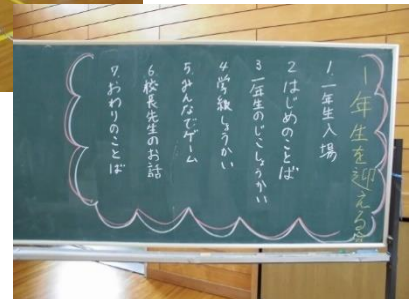 1年生を迎える会
1. 一年生入場
2 はじめのことば
3 一年生のじこしょうかい
4. 学級しょうかい
5. みんなでゲーム
6 校長先生のお話
7. おわりのことば